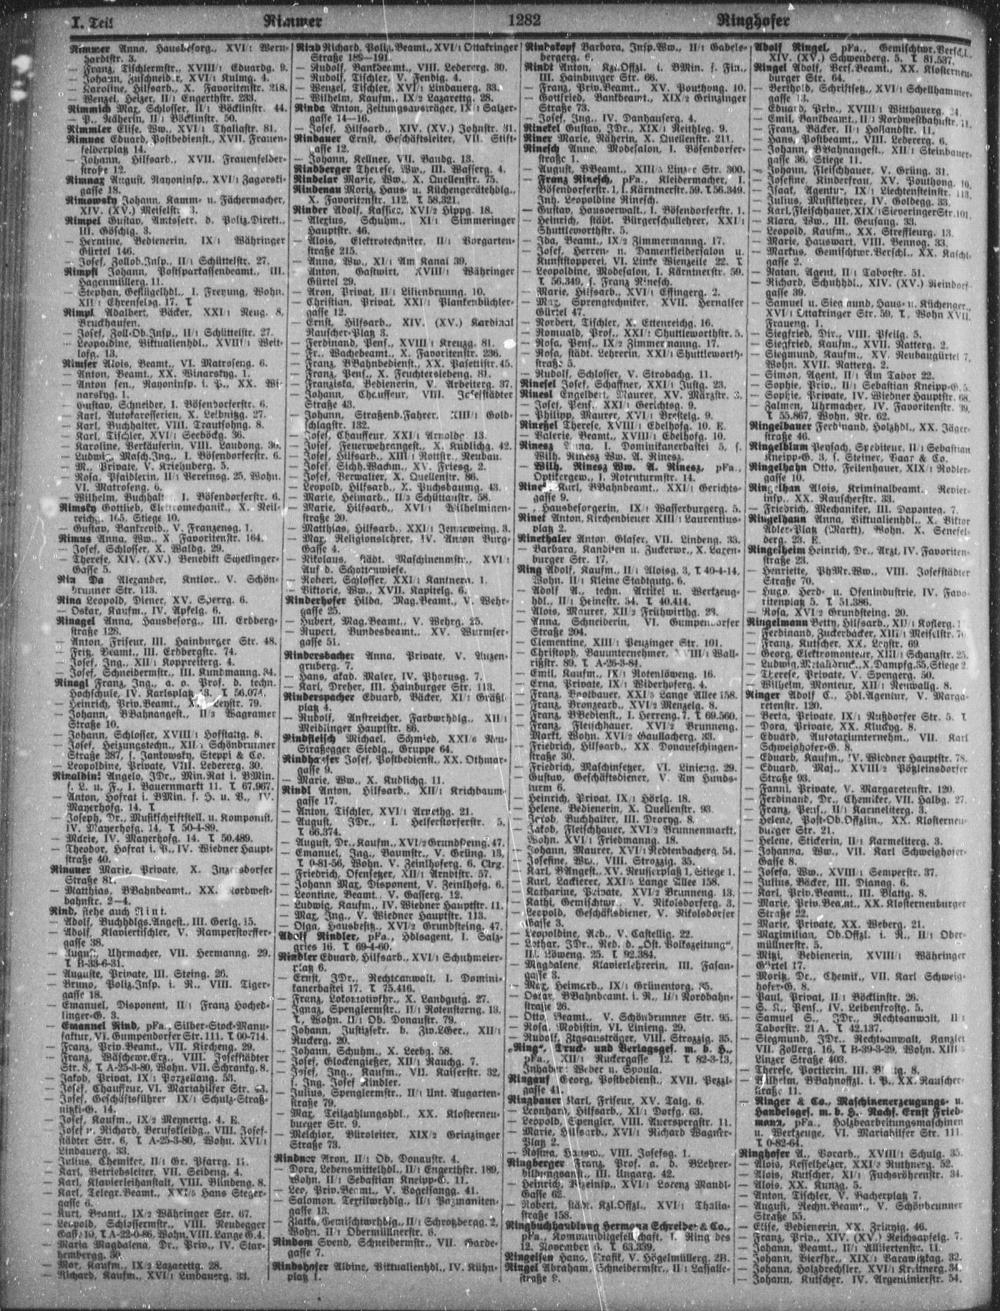 I. Teil
Rimmer
1282
Ringhofer
Rimmer Anna, Hausbesorg., XVI/1 Wern-
hardtstr. 3.
— Franz, Tischlermstr., XVIII/1 Eduardg. 9.
— Johann, Zuschneider, XVI/1 Kulmg. 4.
— Karoline, Hilfsarb., X. Favoritenstr. 218.
— Wenzel, Heizer, II/1 Engerthstr. 233.
Rimmich Max, Schlosser, II/1 Böcklinstr. 44.
— P., Näherin, II/1 Böcklinstr. 50.
Rimmler Elise, Ww., XVI/1 Thaliastr. 81.
Rimnac Eduard, Postbedienst., XVII. Frauen-
felderplatz 14.
— Johann, Hilfsarb., XVII. Frauenfelder-
straße 12.
Rimnar August, Rayoninsp., XVI/1 Zagorski-
gasse 18.
Rimowsky Johann, Kamm- u. Fächermacher,
XIV. (XV.) Meiselstr. 3.
Rimpel Gustav, Amtssekr. d. Poliz.Direkt.,
III. Göschlg. 3.
— Hermine, Bedienerin, IX/1 Währinger
Gürtel 146.
— Josef, Zollob.Insp., II/1 Schüttelstr. 27.
Rimpfl Johann, Postsparkassenbeamt., III.
Hagenmüllerg. 11.
— Stephan, Geflügelhdl., I. Freyung, Wohn.
XII/1 Ehrenfelsg. 17. T
Rimpl Adalbert, Bäcker, XXI/1 Neug. 8,
Bruckhaufen.
— Josef, Zoll-Ob.Insp., II/1 Schüttelstr. 27.
— Leopoldine, Viktualienhdl., XVIII/1 Weit-
lofg. 13.
Rimser Alois, Beamt., VI. Matroseng. 6.
— Anton, Beamt., XX. Winarskyg. 1.
— Anton sen., Rayoninsp. i. P., XX. Wi-
narskyg. 1.
— Gustav, Schneider, I. Bösendorferstr. 6.
— Karl, Autokarosserien, X. Leibnitzg. 27.
— Karl, Buchhalter, VIII. Trautsohng. 8.
— Karl, Tischler, XVI/1 Seeböckg. 36.
— Karoline, Verkäuferin, VIII. Laudong. 36.
— Ludwig, Masch.Ing., I. Bösendorferstr. 6.
— M., Private, V. Kriehuberg. 5.
— Rosa, Pfaidlerin, II/1 Vereinsg. 25, Wohn.
VI. Matroseng. 6.
— Wilhelm, Buchhalt., I. Bösendorferstr. 6.
Rimsky Gottlieb, Elektromechanik., X. Neil-
reichg. 105, Stiege 10.
— Gustav, Bankprob., V. Franzensg. 1.
Rimus Anna, Ww., X. Favoritenstr. 164.
— Josef, Schlosser, X. Waldg. 29.
— Therese, XIV. (XV.) Benedikt Schellinger-
Gasse 5.
Rin Da Alexander, Kntlor., V. Schön-
brunner Str. 113.
Rina Leopold, Diener, XV. Sperrg. 6.
— Oskar, Kaufm., IV. Apfelg. 6.
Rinagel Anna, Hausbesorg., III. Erdberg-
straße 126.
— Anton, Friseur, III. Hainburger Str. 48.
— Fritz, Beamt., III. Erdbergstr. 74.
— Josef, Ing., XII/1 Koppreiterg. 4.
— Josef, Schneidermstr., III. Kundmanng. 34.
Rinagl Franz, Ing., a. o. Prof. d. techn.
Hochschule, IV. Karlsplatz 13.
— Heinrich, Priv.Beamt., X.
— Johann, BBahnangest., II/2 Wagramer
Straße 10.
— Johann, Schlosser, XVIII/1 Hofstattg. 8.
— Josef, Heizungstechn., XII/1 Schönbrunner
Straße 287, f. Jankowsky, Steppi & Co.
— Leopoldine, Private, VIII. Lederrerg. 30.
Rinaldini Angelo, JDr., Min.Rat i. BMin.
f. L. u. F., I. Bauernmarkt 11. T 67.967.
— Anton, Hofrat i. BMin. f. H. u. V., IV.
Mayerhofg. 14. T
— Joseph, Dr., Musikschriftstell. u. Komponist,
IV. Mayerhofg. 14. T 50-4-89.
— Marie, IV. Mayerhofg. 14. T 50.489.
— Theodor, Hofrat i. P., IV. Wiedner Haupt-
straße 40.
Rinauer Marie, Private, X. Inzersdorfer
Straße 81.
— Matthias, BBahnbeamt., XX. Nordwest-
bahnstr. 2—4.
Rind, siehe auch Rint.
— Adolf, Buchhdlgs.Angest., III. Gerlg. 15.
— Adolf, Klaviertischler, V. Ramperstorffer-
gasse 38.
— August, Uhrmacher, VII. Hermanng. 29.
T B-33-6-31.
— Auguste, Private, III. Steing. 26.
— Bruno, Poliz.Insp. i. R., VIII. Tiger-
gasse 18.
— Emanuel, Disponent, II/1 Franz Hoched-
linger-G. 3.
— Emanuel Rind, pFa., Silber-Stock-Manu-
faktur, VI. Gumpendorfer Str. 111. T 00-714.
— Franz, Priv.Beamt., VII. Kircheng. 29.
— Franz, Wäschewr.Erz., VIII. Josefstädter
Str. 8, T A-25-3-80, Wohn. VII. Schrankg. 8.
— Jakob, Privat, IX/1 Porzellang. 53.
— Josef, Chauffeur, VI. Mariahilfer Str.
— Josef, Geschäftsführer, IX/1 Schulz-Straß-
nitzki-G. 14.
— Josef, Kaufm., IX/2 Meynertg. 4. E.
— Josef u. Richard, Berufskleidg., VIII. Josef-
städter Str. 6, T A-25-3-80, Wohn. XVI/1
Lindauerg. 33.
— Julius, Chemiker, II/1 Gr. Pfarrg. 11.
— Karl, Betriebsleiter, VII. Seideng. 4.
— Karl, Klavierleihanstalt, VIII. Blindeng. 8.
— Karl, Telegr.Beamt., XXI/5 Hans Steger-
gasse 6.
— Kurt, Beamt., IX/2 Währinger Str. 67.
— Leopold, Schlossermstr., VIII. Neudegger
Gasse 10, T A-22-0-86, Wohn. VIII. Lange G. 4.
— Maria Magdalena, Dr., Priv., IV. Star-
hembergg. 30.
— Max, Kaufm., IX/2 Lazarettg. 28.
— Richard, Kaufm., XVI/1 Lindauerg. 33.
Rind Richard, Poliz.Beamt., XVI/1 Ottakringer
Straße 189—191.
— Rudolf, Bankbeamt., VIII. Ledererg. 30.
— Rudolf, Tischler, V. Fendig. 4.
— Wenzel, Tischler, XVI/1 Lindauerg. 33.
— Wilhelm, Kaufm., IX/2 Lazarettg. 28.
Rinda Anton, Zeitungsausträger, IX/1 Salzer-
gasse 14—16.
— Josef, Hilfsarb., XIV. (XV.) Johnstr. 31.
Rindauer Ernst, Geschäftsleiter, VII. Stift-
gasse 12.
— Johann, Kellner, VII. Bandg. 13.
Rindberger Therese, Ww., III. Wasserg. 4.
Rindelar Marie, Ww., X. Quellenstr. 75.
Rindenau Moriz, Haus- u. Küchengerätehdlg.,
X. Favoritenstr. 112. T 58.321.
Rinder Adolf, Kassier, XVI/2 Hippg. 18.
— Alexius, Schulm., XI/1 Simmeringer
Hauptstr. 46.
— Alois, Elektrotechniker, II/1 Vorgarten-
straße 215.
— Anna, Ww., XI/1 Am Kanal 39.
— Anton, Gastwirt, XVIII/1 Währinger
Gürtel 29.
— Aron, Privat, II/1 Lilienbrunng. 10.
— Christian, Privat, XXI/1 Plankenbüchler-
gasse 12.
— Ernst, Hilfsarb., XIV. (XV.) Kardinal
Rauscher-Platz 3.
— Ferdinand, Pens., XVIII/1 Kreuzg. 81.
— Fr., Wachebeamt., X. Favoritenstr. 236.
— Franz, BBahnbedienst., XX. Pasettistr. 45.
— Franz, Pens., X. Feuchterslebeng. 81.
— Franziska, Bedienerin, V. Arbeiterg. 37.
— Johann, Chauffeur, VIII. Josefstädter
Straße 43.
— Johann, Straßenb.Fahrer, XIII/1 Gold-
schlagstr. 132.
— Josef, Chauffeur, XXI/1 Arnoldg. 13.
— Josef, Feuerwehrangest., X. Kudlichg. 42.
— Josef, Hilfsarb., XIII/1 Rottstr., Neubau.
— Josef, Sichh.Wachm., XV. Friesg. 2.
— Josef, Verwalter, X. Quellenstr. 86.
— Leopold, Hilfsarb., X. Puchsbaumg. 43.
— Marie, Heimarb., II/2 Schüttaustr. 58.
— Marie, Hilfsarb., XVI/1 Wilhelminen-
straße 20.
— Matthias, Hilfsarb., XXI/1 Jenneweing. 3.
— Max, Religionslehrer, IV. Anton Burg-
Gasse 4.
— Nikolaus, städt. Maschinenmstr., XVI/1
Auf d. Schottenwiese.
— Robert, Schlosser, XXI/1 Kantnerg. 1.
— Viktorie, Ww., XVII. Kapitelg. 6.
Rinderhofer Hilda, Mag.Beamt., V. Wehr-
gasse 25.
— Hubert, Mag.Beamt., V. Wehrg. 25.
— Rupert, Bundesbeamt., XV. Wurmser-
gasse 51.
Rindersbacher Anna, Private, V. Zuzen-
gruberg. 7.
— Hans, akad. Maler, IV. Phorusg. 7.
— Karl, Dreher, III. Hainburger Str. 113.
Rinderspacher Eduard, Bäcker, V. Gräßl-
platz 4.
— Rudolf, Anstreicher, Farbwrhdlg., XII/1
Meidlinger Hauptstr. 86.
Rindfleisch Michael, Schmied, XXI/6 Neu-
Straßegger Siedlg., Gruppe 64.
Rindhafer Josef, Postbedienst., XX. Othmar-
gasse 9.
— Marie, Ww., X. Kudlichg. 11.
Rindl Anton, Hilfsarb., XII/1 Krichbaum-
gasse 17.
— Anton, Tischler, XVI/1 Arnethg. 21.
— August, JDr., I. Helferstorferstr. 5,
T 66.374.
— August, Dr., Kaufm., XVI/2 Grundsteing. 47.
— Emanuel, Ing., Baumstr., V. Grüng. 13,
T 0-81-56, Wohn. V. Zeinlhoferg. 6. Ctrz.
— Friedrich, Ofensetzer, XII/1 Arndtstr. 57.
— Johann Max, Disponent, V. Zeinlhofg. 6.
— Leontine, Beamt., V. Gasserg. 12.
— Ludwig, Kaufm., IV. Wiedner Hauptstr. 11.
— Max, Ing., V. Wiedner Hauptstr. 113.
— Olga, Hausbesitz., XVI/2 Grundsteing. 47.
Adolf Rindler, pFa., Hdlsagent, I. Salz-
gries 16. T 69-4-60.
Rindler Eduard, Hilfsarb., XVI/1 Schuhmeier-
platz 6.
— Ernst, JDr., Rechtsanwalt, I. Domini-
kanerbastei 17. T 75.416.
— Franz, Lokomotivfhr., X. Landgutg. 27.
— Ignaz, Spenglermstr., II/1 Rotensterng. 13,
T, Wohn. II/1 Ob. Donaustr. 79.
— Johann, Justizsekr. b. Ziv.LGer., XII/1
Ruckerg. 20.
— Johann, Schuhm., X. Leebg. 58.
— Josef, Glockengießer, XII/1 Rauchg. 7.
— Josef, Ing., Kaufm., VII. Kaiserstr. 32,
f. Ing. Josef Rindler.
— Julius, Spenglermstr., II/1 Unt. Augarten-
straße 79.
— Max, Teilzahlungshdl., XX. Klosterneu-
burger Str. 9.
— Melchior, Büroleiter, XIX/2 Grinzinger
Straße 73.
Rindner Aron, II/1 Ob. Donaustr. 4.
— Dora, Lebensmittelhdl., II/1 Engerthstr. 189,
Wohn. II/1 Sebastian Kneipp-G. 11.
— Leo, Priv.Beamt., V. Vogelsangg. 41.
— Salomon, Textilwrhdlg., II/1 Pazmaniten-
gasse 13.
— Zlatka, Gemischtwrhdlg., II/1 Schrotzbergg. 2,
Wohn. II/1 Obermüllnerstr. 6.
Rindom Svend, Schneidermstr., VII. Garde-
gasse 7.
Rindshofer Albine, Viktualienhdl., IV. Kühn-
platz 1.
Rindskopf Barbara, Insp.Ww., II/1 Gabels-
bergerg. 6.
Rindt Anton, Kzl.Offzl. i. BMin. f. Fin.,
III. Hainburger Str. 66.
— Franz, Priv.Beamt., XV. Pouthong. 10.
— Gottfried, Bankbeamt., XIX/2 Grinzinger
Straße 73.
— Josef, Ing., IV. Danhauserg. 4.
Rinekel Gustav, JDr., XIX/1 Reithleg. 9.
Riner Marie, Näherin, X. Quellenstr. 211.
Rinesch Anny, Modesalon, I. Bösendorfer-
straße 1.
— August, BBeamt., XXI/1 Linzer Str. 300.
— Franz Rinesch, pFa., Kleidermacher, I.
Bösendorferstr. 1, I. Kärntnerstr. 59. T 56.349.
Inh. Leopoldine Rinesch.
— Gustav, Hausverwalt., I. Bösendorferstr. 1.
— Heinrich, städt. Bürgerschullehrer, XXI/1
Shuttleworthstr. 5.
— Ida, Beamt., IX/2 Zimmermanng. 17.
— Josef, Herren- u. Damenkleidersalon u.
Kunststopperei, VI. Linke Wienzeile 22. T
— Leopoldine, Modesalon, I. Kärntnerstr. 59.
T 56.349, f. Franz Rinesch.
— Marie, Hilfsarb., XVI/1 Effingerg. 2.
— Max, Sprengtechniker, XVII. Hernalser
Gürtel 47.
— Norbert, Tischler, X. Ettenreichg. 16.
— Romuald, Prof., XXI/1 Shuttleworthstr. 5.
— Rosa, Pens., IX/2 Zimmermanng. 17.
— Rosa, städt. Lehrerin, XXI/1 Shuttleworth-
straße 5.
— Rudolf, Schlosser, V. Strobachg. 11.
Rinesel Josef, Schaffner, XXI/1 Justg. 23.
Rinesl Engelbert, Maurer, XV. Märzstr. 3.
— Josef, Pens., XXI/1 Gerichtsg. 9.
— Philipp, Maurer, XVI/1 Bresteig. 9.
Rineßel Therese, XVIII/1 Edelhofg. 10. E.
— Valerie, Beamt., XVIII/1 Edelhofg. 10.
Rinesz Anna, I. Dominikanerbastei 5, f.
Wilh. Rinesz Ww. A. Rinesz.
— Wilh. Rinesz Ww. A. Rinesz, pFa.,
Optikergew., I. Rotenturmstr. 14.
Karl, BBahnbeamt., XXI/1 Gerichts-
gasse 9.
— Hausbesorgerin, IX/1 Wasserburgerg. 5.
Rinet Anton, Kirchendiener XIII/1 Laurentius-
platz 2.
Rinethaler Anton, Glaser, VII. Lindeng. 33.
— Barbara, Kanditen u. Zuckerw., X. Laxen-
burger Str. 17.
Ring Adolf, Kaufm., II/1 Aloisg. 3, T 40-4-14,
Wohn. II/1 Kleine Stadtgutg. 6.
— Adolf A., techn. Artikel u. Werkzeug-
hdl., II/1 Heinestr. 54. T 40.414.
— Alois, Maurer, XII/2 Frühwirthg. 23.
— Anna, Schneiderin, VI. Gumpendorfer
Straße 204.
— Clementine, XIII/1 Penzinger Str. 101.
— Christoph, Bauunternehmer, XVIII/1 Wall-
rißstr. 89. T A-26-3-84.
— Emil, Kaufm., IX/1 Rotenlöweng. 16.
— Erna, Private, IX/1 Widerhoferg. 4.
— Franz, Brotbauer, XXI/3 Lange Allee 158.
— Franz, Bronzearb., XVI/2 Menzelg. 8.
— Franz, BBedienst., I. Herreng. T 69.560.
— Franz, Fleischhauer, XVI/2 Brunneng.
Markt, Wohn. XVI/2 Gaullacherg. 33.
— Friedrich, Hilfsarb., XX. Donaueschingen-
straße 30.
— Friedrich, Maschinsetzer, VI. Linieng. 29.
— Gustav, Geschäftsdiener, V. Am Hunds-
turm 6.
— Heinrich, Privat, IX/1 Hörlg. 18.
— Helene, Bedienerin, X. Quellenstr. 93.
— Jakob, Buchhalter, III. Dreryg. 8.
— Jakob, Fleischhauer, XVI/2 Brunnenmarkt,
Wohn. XVI/1 Friedmanng. 18.
— Johann, Maurer, XVI/1 Redtenbacherg. 54.
— Josefine, Ww., VIII. Strozzig. 35.
— Karl, BAngest., XV. Neusserplatz 1, Stiege 1.
— Karl, Lackierer, XXI/3 Lange Allee 158.
— Katharine, Private, XVI/2 Brunneng. 13.
— Kathi, Gemischtw., V. Nikolsdorferg. 3.
— Leopold, Geschäftsdiener, V. Nikolsdorfer
Gasse 3.
— Leopoldine, Red., V. Castellig. 22.
— Lothar, JDr., Red. d. „Öst. Volkszeitung",
III. Löweng. 25. T 92.384.
— Magdalene, Klavierlehrerin, III. Fasan-
gasse 3.
— Max, Heimarb., IX/1 Grünentorg. 35.
— Oskar, BBahnbeamt. i. R., II/1 Nordbahn-
straße 26.
— Otto, Beamt., V. Schönbrunner Str. 95.
— Rosa, Modistin, VI. Linieng. 29.
— Rudolf, Ztgsausträger, VIII. Strozzig. 35.
„Ring", Druck- und Verlagsges. m. b. H.,
pFa., XII/1 Ruckergasse 12. T 82-3-13,
Inhaber: Weber u. Spoula.
Ringauf Georg, Postbedienst., XVII. Pezzl-
gasse 41.
Ringbauer Karl, Friseur, XV. Talg. 6.
— Leonhard, Hilfsarb., XI/1 Dorfg. 63.
— Leopold, Spengler, VIII. Auerspergstr. 11.
— Marie, Hilfsarb., XVI/1 Richard Wagner-
Platz 2.
— Rosina, Hausw., VIII. Josefsg. 1.
Ringberger Franz, Prof. a. d. BLehrer-
bildungsanst., III. Ungarg. 42.
— Heinrich, Rayinsp., XVI/1 Lorenz Mandl-
Gasse 62.
— Robert, städt. Kzl.Offzl., XVI/1 Thalia-
straße 158.
Ringbuchhandlung Hermann Schreiber & Co.,
pFa., Kommanditgesellschaft, I. Ring des
12. November 16. T 63.339.
Ringelsen Hans, Trafik, V. Högelmüllerg. 2B.
Ringel Abraham, Schneidermstr., II/1 Lassalle-
straße 9.
Adolf Ringel, pFa., Gemischtwr.Versch.,
XIV. (XV.) Schwenderg. 5. T 81.537.
Ringel Adolf, Vers.Beamt., XX. Klosterneu-
burger Str. 64.
— Berthold, Schriftsetz., XVI/1 Schellhammer-
gasse 13.
— Eduard, Priv., XVIII/1 Witthauerg. 24.
— Emil, Bankbeamt., II/1 Nordwestbahnstr. 11.
— Franz, Bäcker, II/1 Hollandstr. 11.
— Hans, Postbeamt., VIII. Ledererg. 6.
— Johann, BBahnangest., XII/1 Steinbauer-
gasse 36, Stiege 11.
— Johann, Fleischhauer, V. Grüng. 31.
— Josefine, Kinderfrau, XV. Pouthong. 10.
— Isaak, Agentur, IX/1 Liechtensteinstr. 113.
— Julius, Musiklehrer, IV. Goldegg. 33.
— Karl, Fleischhauer, XIX/1 Sieveringer Str. 101.
— Klara, Ww., III. Geusaug. 33.
— Leopold, Kaufm., XX. Streffleurg. 13.
— Marie, Hauswart, VIII. Bennog. 33.
— Markus, Gemischtwr.Versch., XX. Kaschl-
gasse 2.
— Natan, Agent, II/1 Taborstr. 51.
— Richard, Schuhhdl., XIV. (XV.) Reindorf-
gasse 39.
— Samuel u. Siegmund, Haus- u. Küchenger.,
XVI/1 Ottakringer Str. 59. T, Wohn. XVII.
Frauengg. 1.
— Siegfried, Dir., VIII. Pfeilg. 5.
— Siegfried, Kaufm., XVII. Ratterg. 2.
— Siegmund, Kaufm., XV. Neubaugürtel 7,
Wohn. XVII. Ratterg. 2.
— Simon, Agent, II/1 Am Tabor 22.
— Sophie, Priv., II/1 Sebastian Kneipp-G. 5.
— Sophie, Private, IV. Wiedner Hauptstr. 68.
— Zalmen, Uhrmacher, IV. Favoritenstr. 39,
T 55.867, Wohn. Nr. 62.
Ringelbauer Ferdinand, Holzhdl., XX. Jäger-
straße 46.
Ringelblum Peysach, Spediteur, II/1 Sebastian
Kneipp-G. 3, f. Steiner, Baar & Co.
Ringelhahn Otto, Feilenhauer, XIX/1 Kobler-
gasse 10.
Alois, Kriminalbeamt., Revier-
insp., XX. Rauscherstr. 33.
— Friedrich, Mechaniker, III. Daponteg. 7.
Ringelhann Anna, Viktualienhdl., X. Viktor
Adler-Platz (Markt), Wohn. X. Senefel-
derg. 23. E.
Ringelheim Heinrich, Dr., Arzt, IV. Favoriten-
straße 23.
— Henriette, PhMr.Ww., VIII. Josefstädter
Straße 70.
— Hugo, Herd- u. Ofenindustrie, IV. Favo-
ritenplatz 5. T 51.386.
— Rosa, XVI/2 Grundsteing. 20.
Ringelmann Betty, Hilfsarb., XII/1 Koflerg. 1.
— Ferdinand, Zuckerbäcker, XIII/1 Meiselstr. 70
— Franz, Kutscher, XX. Leystr. 69.
— Georg, Elektromonteur, XIII/1 Schanzstr. 25.
— Ludwig, Metalldruck., X. Dampfg. 35, Stiege 2.
— Therese, Private, V. Spengerg. 50.
— Wilhelm, Monteur, XII/1 Neuwallg. 8.
Ringer Adolf C., Hdl.Agentur, V. Marga-
retenstr. 120.
— Berta, Private, IX/1 Nußdorfer Str. 5. T
— Dora, Private, XX. Kluckyg. 8.
— Eduard, Autotaxiunternehm., VII. Karl
Schweighofer-G. 8.
— Eduard, Kaufm., IV. Wiedner Hauptstr. 78.
— Eduard, Maj., XVIII/2 Pötzleinsdorfer
Straße 93.
— Fanni, Private, V. Margaretenstr. 120.
— Ferdinand, Dr., Chemiker, VII. Halbg. 27.
— Franz, Pens., II/1 Karmeliterg. 3.
— Helene, Post-Ob.Offizlin., XX. Klosterneu-
burger Str. 21.
— Helene, Stickerin, II/1 Karmeliterg. 3.
— Johanna, Ww., VII. Karl Schweighofer-
Gasse 8.
— Josefa, Ww., XVIII/1 Semperstr. 37.
— Julius, Bäcker, III. Dianag. 6.
— Karl, Priv.Beamt., III. Blattg. 8.
— Marie, Priv.Beamt., XX. Klosterneuburger
Straße 22.
— Marie, Private, XX. Weberg. 21.
— Maximilian, Ob.Offzl. i. R., II/1 Ober-
müllnerstr. 5.
— Mitzi, Bedienerin, XVIII/1 Währinger
Gürtel 17.
— Moritz, Dr., Chemik., VII. Karl Schweig-
hofer-G. 8.
— Paul, Privat, II/1 Böcklinstr. 26.
— S. R., Pens., IV. Leibenfrostg. 5.
— Samuel S., JDr., Rechtsanwalt, II/1
Taborstr. 21 A. T 42.137.
— Siegfried, JDr., Rechtsanwalt, Kanzlei
VII. Zollerg. 16, T B-39-3-29, Wohn. XIII/5
Linzer Straße 403.
— Therese, Portierin, III. Blattg. 8.
— Wilhelm, BBahnoffzl. i. P., XX. Rauscher-
straße 11.
Ringer & Co., Maschinenerzeugungs- u.
Handelsges. m. b. H., Nachf. Ernst Fried-
mann, pFa., Holzbearbeitungsmaschinen
u. Werkzeuge, VI. Mariahilfer Str. 111.
T 0-82-64.
Ringhofer A., Vorarb., XVIII/1 Schulg. 35.
— Alois, Kesselheizer, XXI/2 Ruthnerg. 52.
— Alois, Kutscher, XI/1 Fuchsröhrenstr. 34.
— Alois, XX. Kunzg. 5.
— Anton, Tischler, V. Bacherplatz 7.
— August, Rechn.Beamt., V. Schönbrunner
Straße 55.
— Elise, Bedienerin, XX. Friesig. 46.
— Franz, Priv., XIV. (XV.) Reichsapfelg. 7.
— Johann, Beamt., II/1 Alliiertenstr. 11.
— Johann, Bierfhr., XIX/2 Barawitzkag. 32.
— Johann, Holzdrechsler, XVI/1 Kretneg. 34.
— Johann, Kutscher, IV. Argentinierstr. 54.